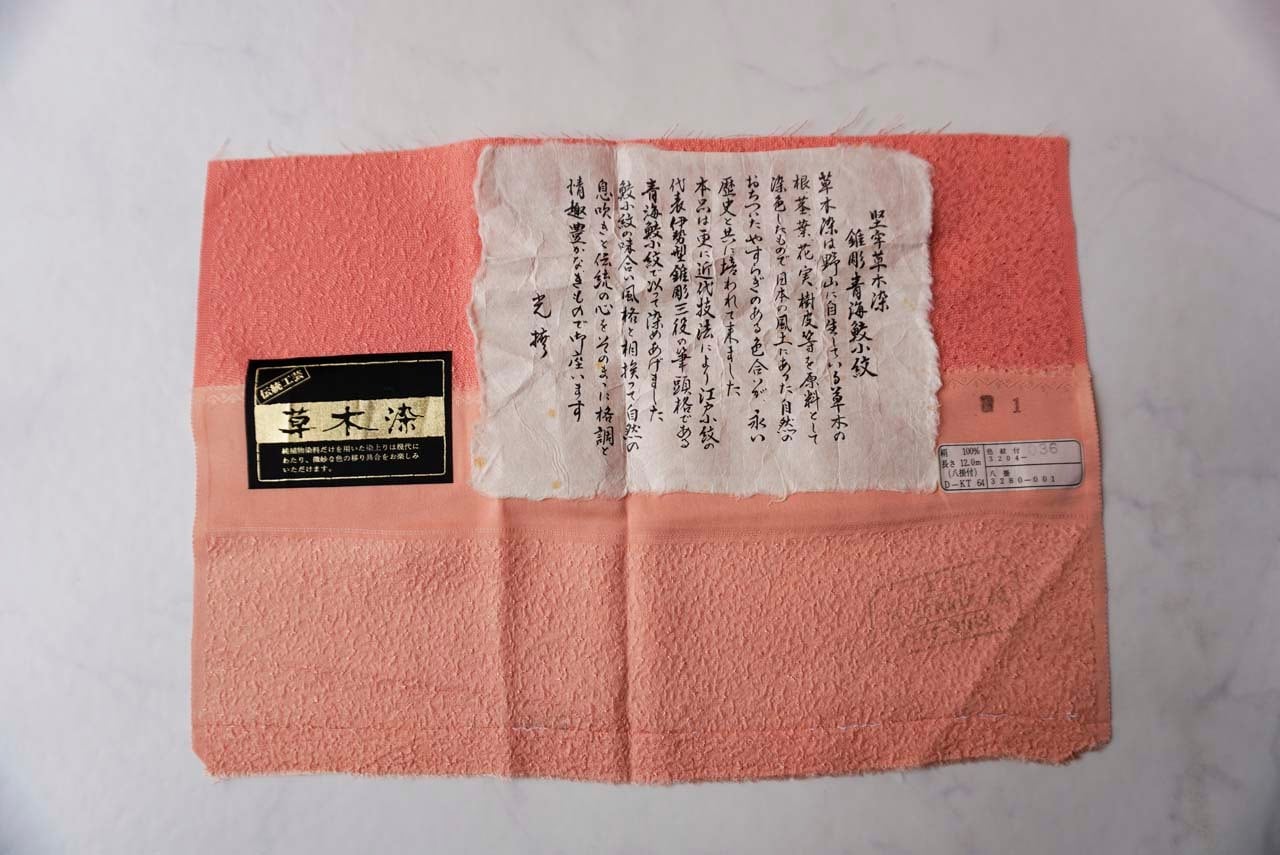 堅牢草木染
錐彫青海鮫小紋
草木染は野山に自生している草木の
根茎葉花実樹皮等を原料として
染色したもので日本の風土にあった自然の
おちついたやすらぎのある色合いが永い
歴史と共に培われて来ました
本品は更に近代技法により江戸小紋の
代表伊勢型錐彫三役の筆頭格である
青海鮫小紋で以って染めあげました
鮫小紋の味合い風格と相挨って自然の
息吹きと伝統の心をそのまゝに格調と
情趣豊かなきもので御座います
伝統工芸
草木染
純植物染料だけを用いた染上りは現代に
わたり、微妙な色の移り具合をお楽しみ
いただけます。
1
絹 100%
長さ 12.0m
(八掛付)
D-KT 64
色紋付
3204-036
八掛
3280-001